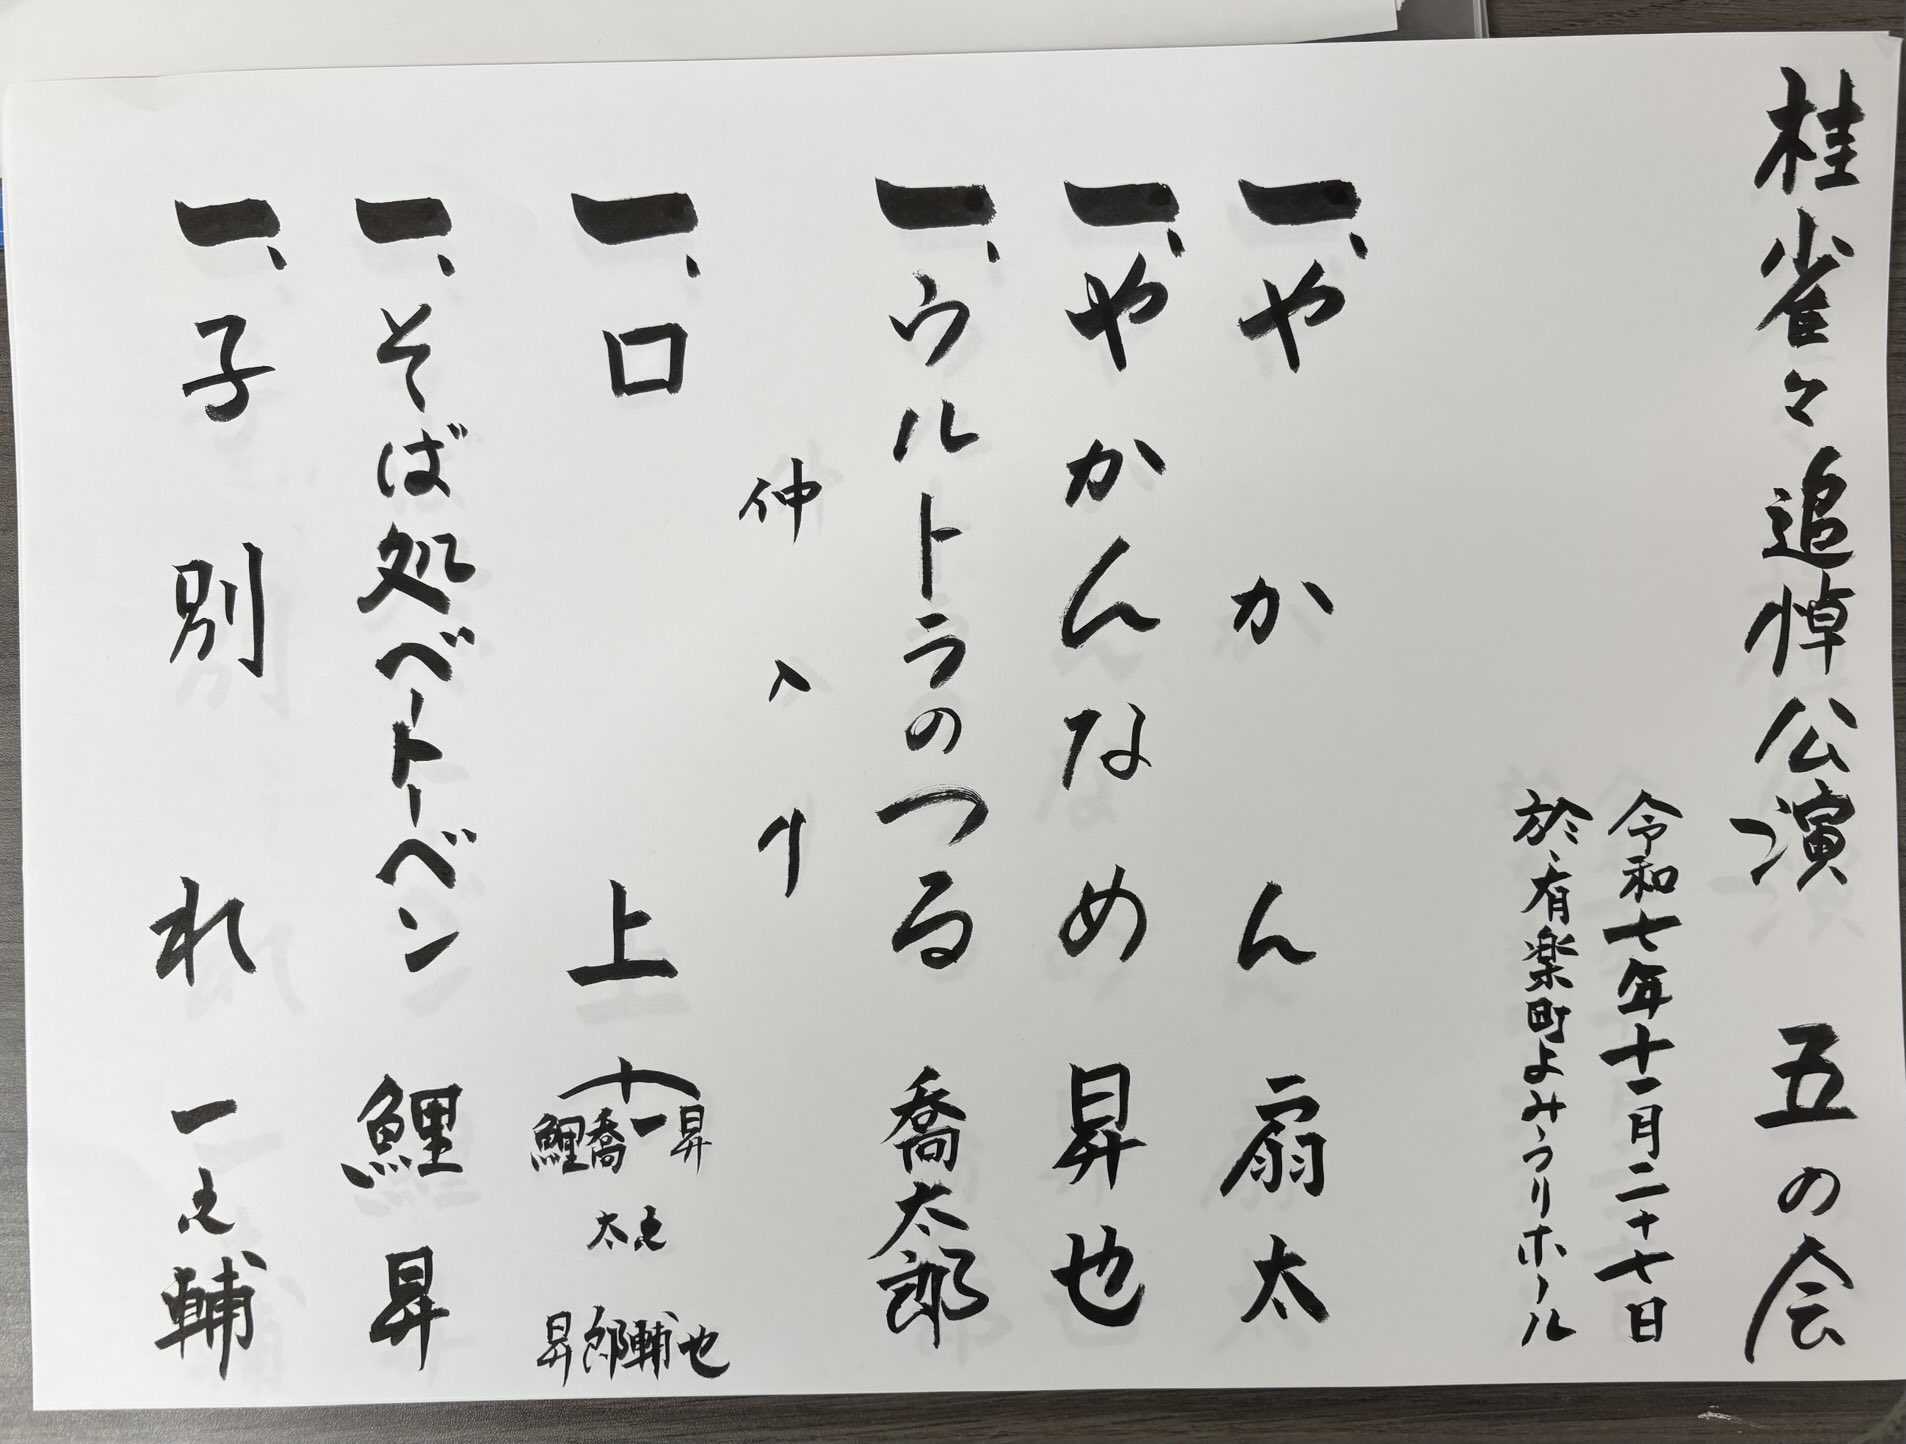 桂雀々追悼公演 五の会
令和七年十一月二十七日
於、有楽町よみうりホール
一、やかん 扇太
一、やかんなめ 昇也
一、ウルトラのつる 喬太郎
仲入り
一、口上
昇也
一之輔
喬太郎
鯉昇
一、そば処ベートーベン 鯉昇
一、子別れ 一之輔